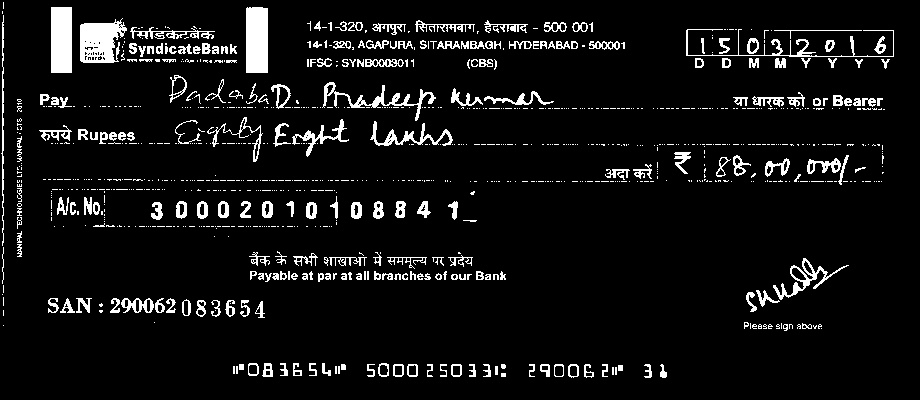 सिंडिकेटबैंक
SyndicateBank
14-1-320, अगपुरा, सितारामबाग, हैदराबाद - 500 001
14-1-320, AGAPURA, SITARAMBAGH, HYDERABAD - 500001
IFSC : SYNB0003011 (CBS)
15032016
D D M M Y Y Y Y
Pay D. Pradeep Kumar या धारक को or Bearer
रुपये Rupees Eighty Eight lakhs
अदा करें ₹ 88,00,000/-
A/c. No. 30002010108841
बैंक के सभी शाखाओ में सममूल्य पर प्रदेय
Payable at par at all branches of our Bank
SAN : 290062 083654
Please sign above
MANIPAL TECHNOLOGIES LTD. MANIPAL / CTS - 2010
⑈083654⑈ 500025033⑆ 290062⑈ 31